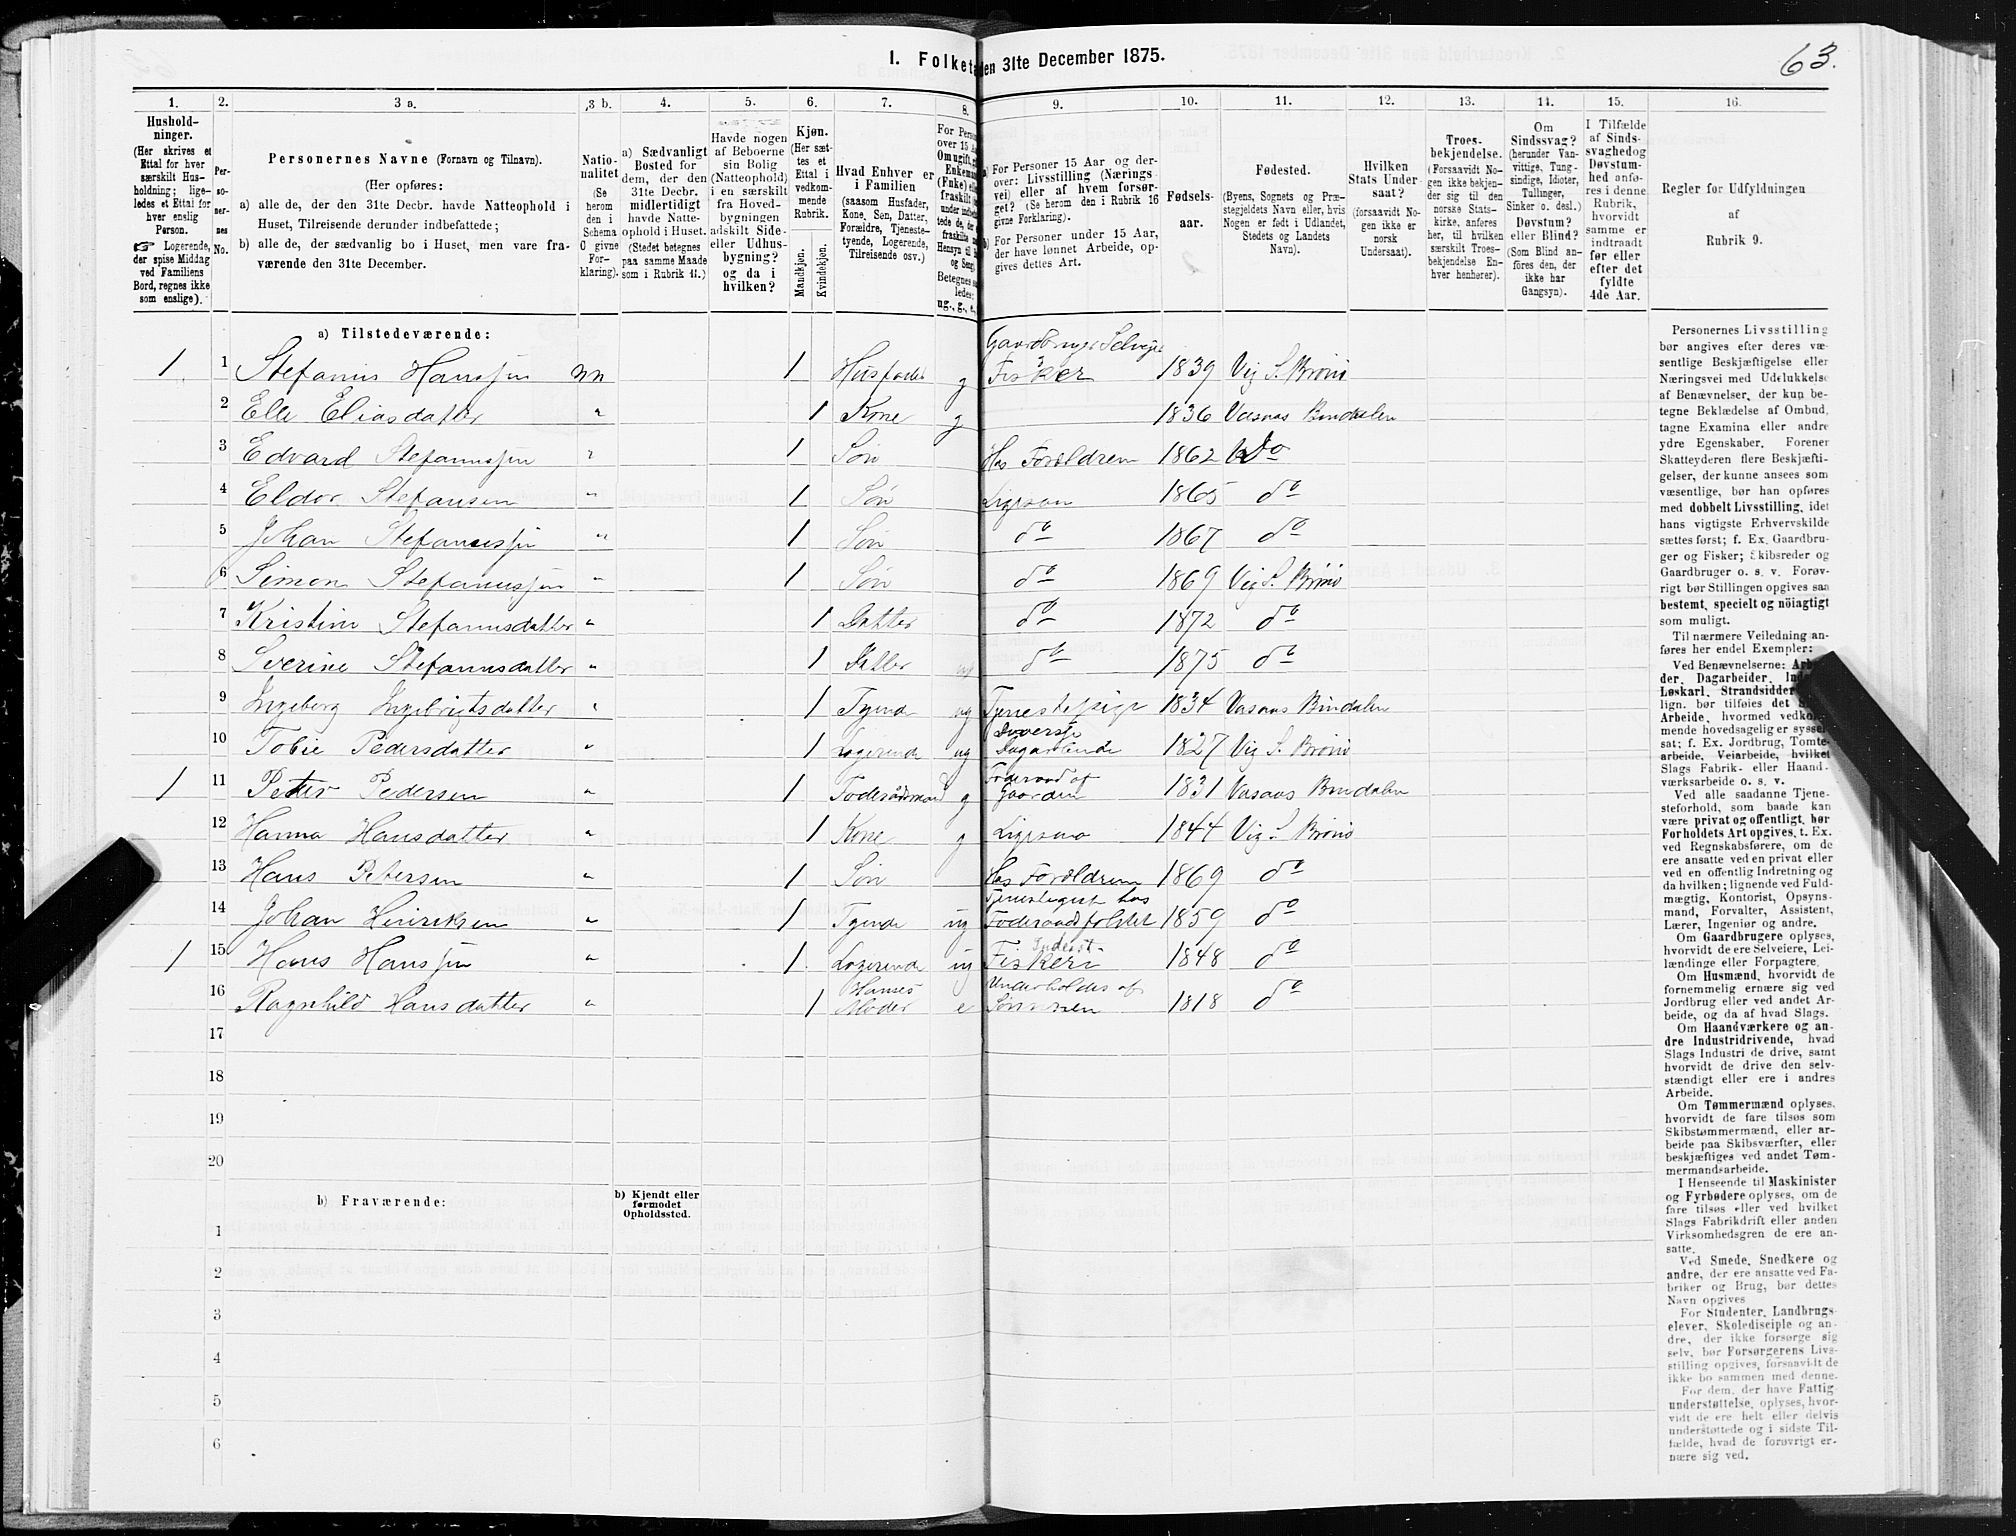 63.
I. Folketæ den 31te December 1875.
1. 2. 3 a. 3 b. 4. 5. 6. 7. 8. 9. 10. 11. 12. 13. 14. 15. 16.
Hushold-
ninger.
(Her skrives et
Ettal for hver
særskilt Hus-
holdning; lige-
ledes et Ettal for
hver enslig
Person.
☞ Logerende,
der spise Middag
ved Familiens
Bord, regnes ikke
som enslige).
Per-
so-
ner-
nes
No.
Personernes Navne (Fornavn og Tilnavn).
(Her opføres:
a) alle de, der den 31te Decbr. havde Natteophold i
Huset, Tilreisende derunder indbefattede;
b) alle de, der sædvanlig bo i Huset, men vare fra-
værende den 31te December.
Natio-
nalitet
(Se
herom
den i
Schema
O givne
For-
klaring).
a) Sædvanligt
Bosted for
dem, der den
31te Decbr.
midlertidigt
havde Natte-
ophold i Huset.
(Stedet betegnes
paa samme Maade
som i Rubrik 11.)
Havde nogen
af Beboerne
sin Bolig
(Natteophold)
i en særskilt
fra Hoved-
bygningen
adskilt Side-
eller Udhus-
bygning?
og da i
hvilken?
Kjøn.
(Her sæt-
tes et
Ettal i
vedkom-
mende
Rubrik.
Mandkjøn.
Kvindekjøn.
Hvad Enhver er
i Familien
(saasom Husfader,
Kone, Søn, Datter,
Forældre, Tjeneste-
tyende, Logerende,
Tilreisende osv.)
For Pers
over 15 A
Omugift, g
Enkeman
(Fnke) el
fraskilt
under indbe
tede de, der
fraskilte
Hensyn til
og Seng
Betegnes s
ledes:
ug., g., e.
a) For Personer 15 Aar og der-
over: Livsstilling (Nærings-
vei) eller af hvem forsør-
get? (Se herom den i Rubrik 16
givne Forklaring).
b) For Personer under 15 Aar,
der have lønnet Arbeide, op-
gives dettes Art.
Fødsels-
aar.
Fødested.
(Byens, Sognets og Præ-
stegjeldets Navn eller, hvis
Nogen er født i Udlandet,
Stedets og Landets
Navn).
Hvilken
Stats Under-
saat?
(forsaavidt No-
gen ikke er
norsk
Undersaat).
Troes-
bekjendelse.
(Forsaavidt No-
gen ikke bekjen-
der sig til den
norske Stats-
kirke, anføres
her, til hvilken
særskilt Troes-
bekjendelse En-
hver henhører).
Om
Sindssvag?
(herunder Van-
vittige, Tung-
sindige, Idioter,
Tullinger,
Sinker o. desl.)
Døvstum?
eller Blind?
(Som Blind an-
føres den, der
ikke har
Gangsyn).
I Tilfælde
af Sinds-
svaghedog
Døvstum-
hed anfø-
res i denne
Rubrik,
hvorvidt
samme er
indtraadt
før eller
efter det
fyldte
4de Aar.
Regler før Udfyldningen
af
Rubrik 9.
a) Tilstedeværende:
Gaardbruger Selveje
1 1 Stefanus Hanssen nn 1 Husfader g Fisker 1839 Vig S. Brønø
2 Elle Eliasdatter " 1 Kone g 1836 Vasaas Bindalen
3 Edvard Stefanussen " 1 Søn Hos Forældrene 1862 Do
4 Eldor Stefansen " 1 Søn Ligesaa 1865 do
5 Johan Stefanussen " 1 Søn do 1867 do
6 Simon Stefanussen " 1 Søn do 1869 Vig S. Brønø
7 Kristine Stefanusdatter " 1 Datter do 1872 do
8 Sverine Stefanusdatter " 1 Datter ug do 1875 do
9 Ingeborg Ingebrigtsdatter " 1 Tyende ug Tjenestepige 1834 Vasaas Bindalen
10 Tobie Pedersdatter " 1 Logerende ug 1827 Vig S. Brønø
1 11 Peter Pedersen " 1 Foderaadsmand g Foderaad af Gaarden 1831 Vasaas Bindalen
12 Hanna Hansdatter " 1 Kone g Ligesaa 1844 Vig S. Brønø
13 Hans Petersen " 1 Søn Hos Forældrene 1869 do
14 Johan Henriksen " 1 Tyende ug Tjenestegut hos Foderaadsfolket 1859 do
1 15 Hans Hanssen " 1 Logerende ug Inderst Fiskeri 1848 do
16 Ragnhild Hansdatter " 1 Hanses Moder e Underholdes af Sønnen 1818 do
17
18
19
20
b) Fraværende:
b) Kjendt eller
formodet
Opholdssted.
1
2
3
4
5
6
Personernes Livsstilling
bør angives efter deres væ-
sentlige Beskjæftigelse eller
Næringsvei med Udelukkelse
af Benævnelser, der kun be-
tegne Beklædelse af Ombud,
tagne Examina eller andre
ydre Egenskaber. Forener
Skatteyderen flere Beskjæfti-
gelser, der kunne ansees som
væsentlige, bør han opføres
med dobbelt Livsstilling, idet
hans vigtigste Erhvervskilde
sættes først; f. Ex. Gaardbru-
ger og Fisker; Skibsreder og
Gaardbruger o. s. v. Forøv-
rigt bør Stillingen opgives saa
bestemt, specielt og nøiagtigt
som muligt.
Til nærmere Veiledning an-
føres her endel Exempler:
Ved Benævnelserne: Arb
der, Dagarbeider, Ind
Løskarl, Strandsidder
lign. bør tilføies det S
Arbeide, hvormed vedkom-
mende hovedsagelig er syssel
sat; f. Ex. Jordbrug, Tomte-
arbeide, Veiarbeide, hvilket
Slags Fabrik- eller Haand-
værksarbeide o. s. v.
Ved alle saadanne Tjene-
steforhold, som baade kan
være privat og offentligt, bør
Forholdets Art opgives, t. Ex.
ved Regnskabsførere, om de
ere ansatte ved en privat eller
ved en offentlig Indretning og
da hvilken; lignende ved Fuld-
mægtig, Kontorist, Opsyns-
mand, Forvalter, Assistent,
Lærer, Ingeniør og andre.
Om Gaardbrugere oplyses,
hvorvidt de ere Selveiere, Lei-
lændinge eller Forpagtere.
Om Husmænd, hvorvidt de
fornemmelig ernære sig ved
Jordbrug eller ved andet Ar-
beide, og da af hvad Slags.
Om Haandværkere og an-
dre Industridrivende, hvad
Slags Industri de drive, samt
hvorvidt de drive den selv-
stændigt eller ere i andres
Arbeide.
Om Tømmermænd oplyses,
hvorvidt de fare tilsøs som
Skibstømmermænd, eller ar-
beide paa Skibsværfter, eller
beskjæftiges ved andet Tøm-
mermandsarbeide.
I Henseende til Maskinister
og Fyrbødere oplyses, om de
fare tilsøs eller ved hvilket
Slags Fabrikdrift eller anden
Virksomhedsgren de ere an-
satte.
Ved Smede, Snedkere og
andre, der ere ansatte ved Fa-
briker og Brug, bør dettes
Navn opgives
For Studenter, Landbrugs-
elever, Skoledisciple og an-
dre, der ikke forsørge sig
selv, bør Forsørgerens Livs-
stilling opgives, forsaavidt de
ikke bo sammen med denne.
For dem, der have Fattig-
understøttelse, oplyses, hvor-
vidt de ere helt eller delvis
understøttede og i sidste Til-
fælde, hvad de forøvrigt er-
nære sig ved.